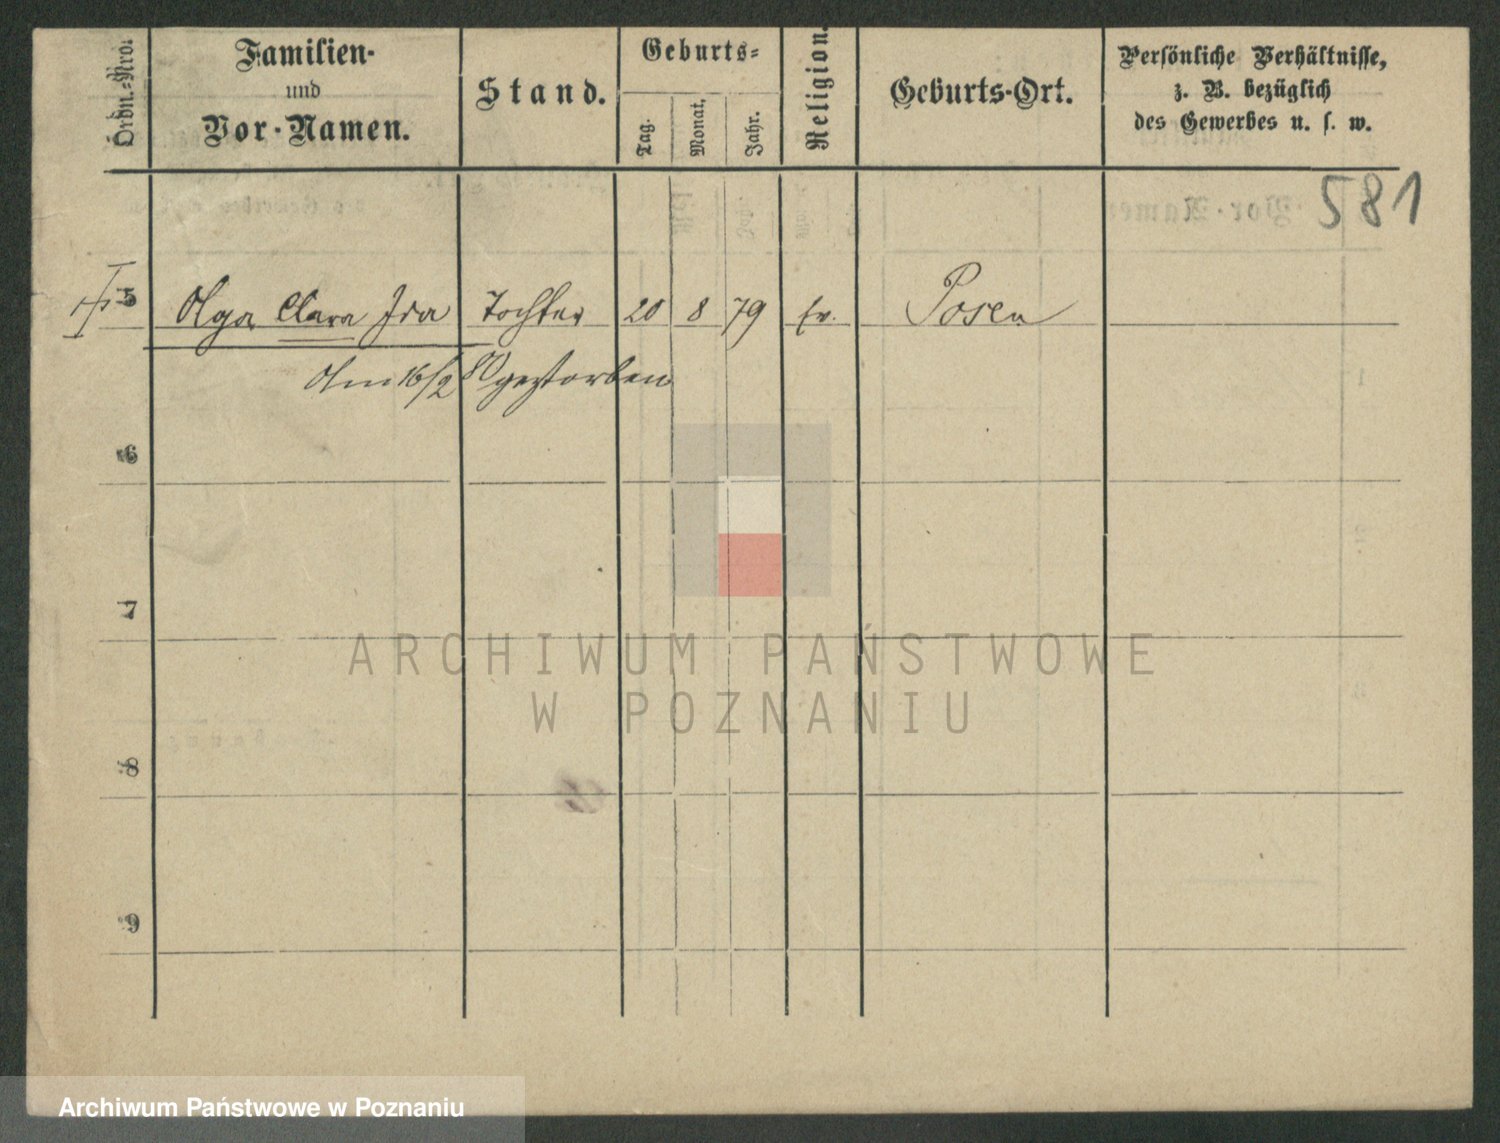 Ordn.-Nro.
Familien-
und
Vor-Namen.
Stand.
Geburts-
Tag.
Monat.
Jahr.
Religion.
Geburts-Ort.
Persönliche Verhältnisse,
z. B. bezüglich
des Gewerbes u. s. w.
581
5 Olga Clara Ida Tochter 20 8 79 Ev. Posen
Am 16/2 80 gestorben
6
7
8
9
ARCHIWUM PAŃSTWOWE
W POZNANIU
Archiwum Państwowe w Poznaniu